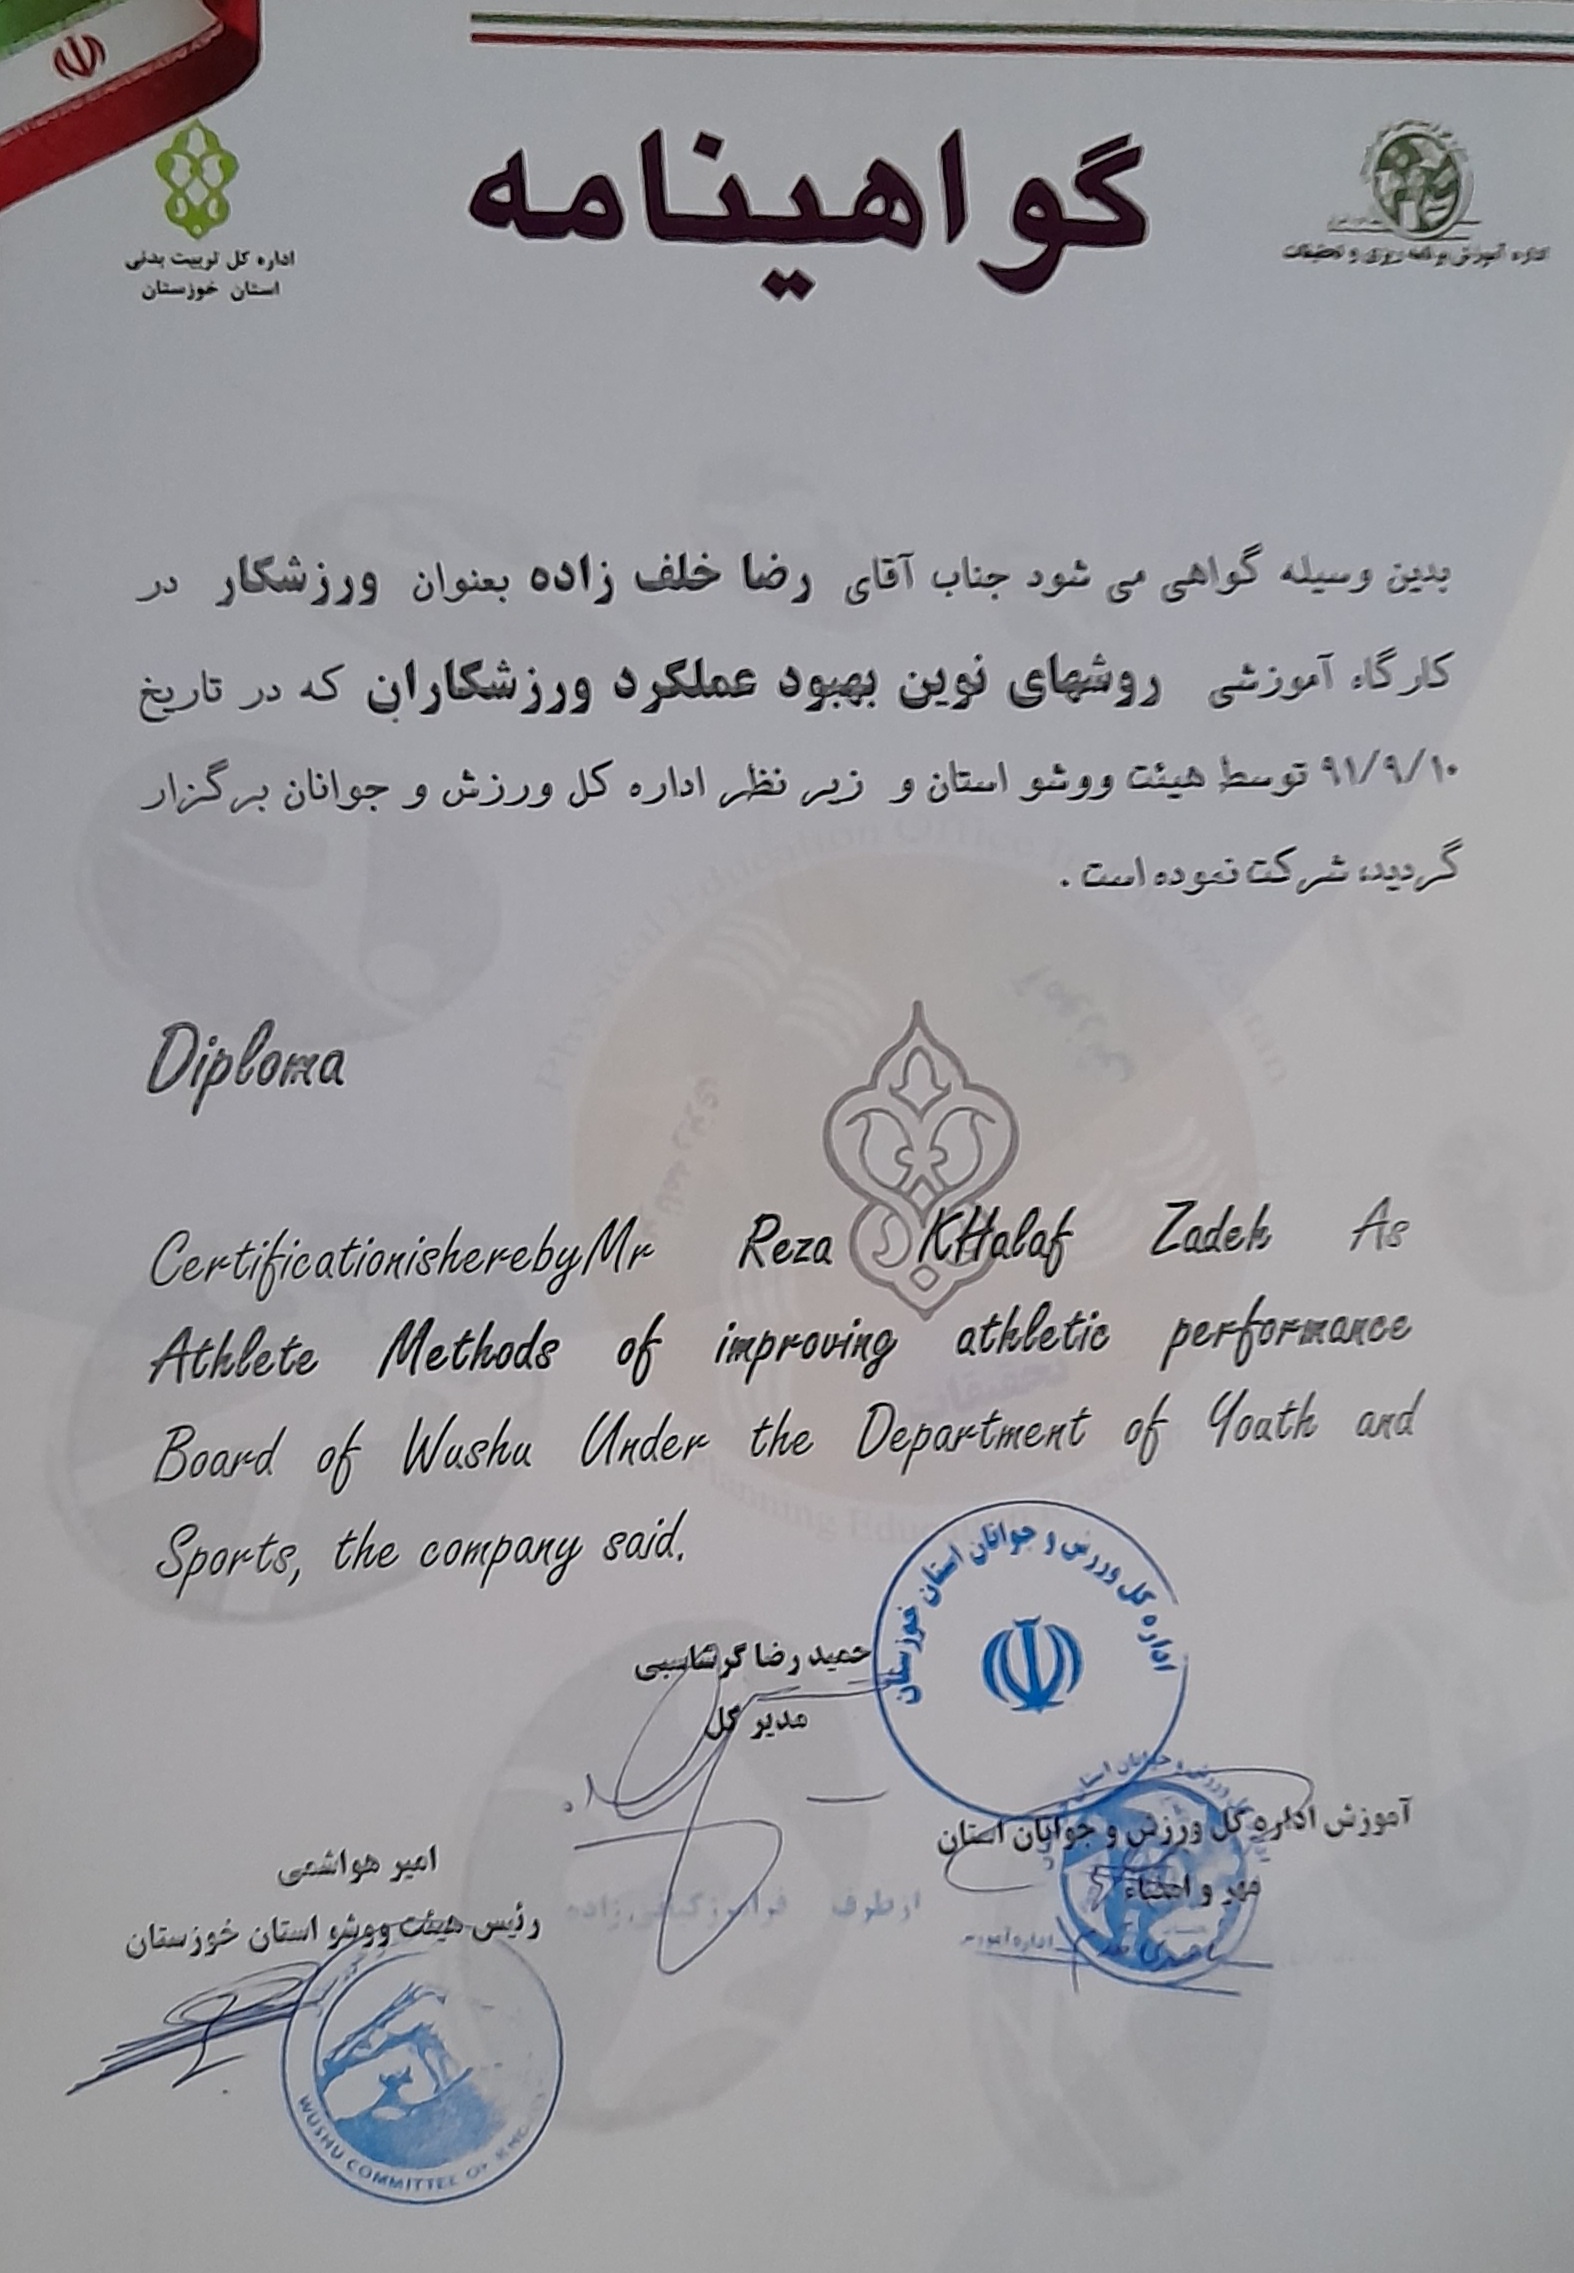 گواهینامه
اداره کل تربیت بدنی
استان خوزستان
اداره آموزش برنامه ریزی و تحقیقات
بدین وسیله گواهی می شود جناب آقای رضا خلف زاده بعنوان ورزشکار در
کارگاه آموزشی روشهای نوین بهبود عملکرد ورزشکاران که در تاریخ
۹۱/۹/۱۰ توسط هیئت ووشو استان و زیر نظر اداره کل ورزش و جوانان برگزار
گردید، شرکت نموده است .
Diploma
CertificationisherebyMr Reza KHalaf Zadeh As
Athlete Methods of improving athletic performance
Board of Wushu Under the Department of Youth and
Sports, the company said.
اداره کل ورزش و جوانان استان خوزستان
حمید رضا گرشاسبی
مدیر کل
آموزش اداره کل ورزش و جوانان استان
مهر و امضاء
از طرف
امیر هواشمی
رئیس هیئت ووشو استان خوزستان
WUSHU COMMITTEE OF